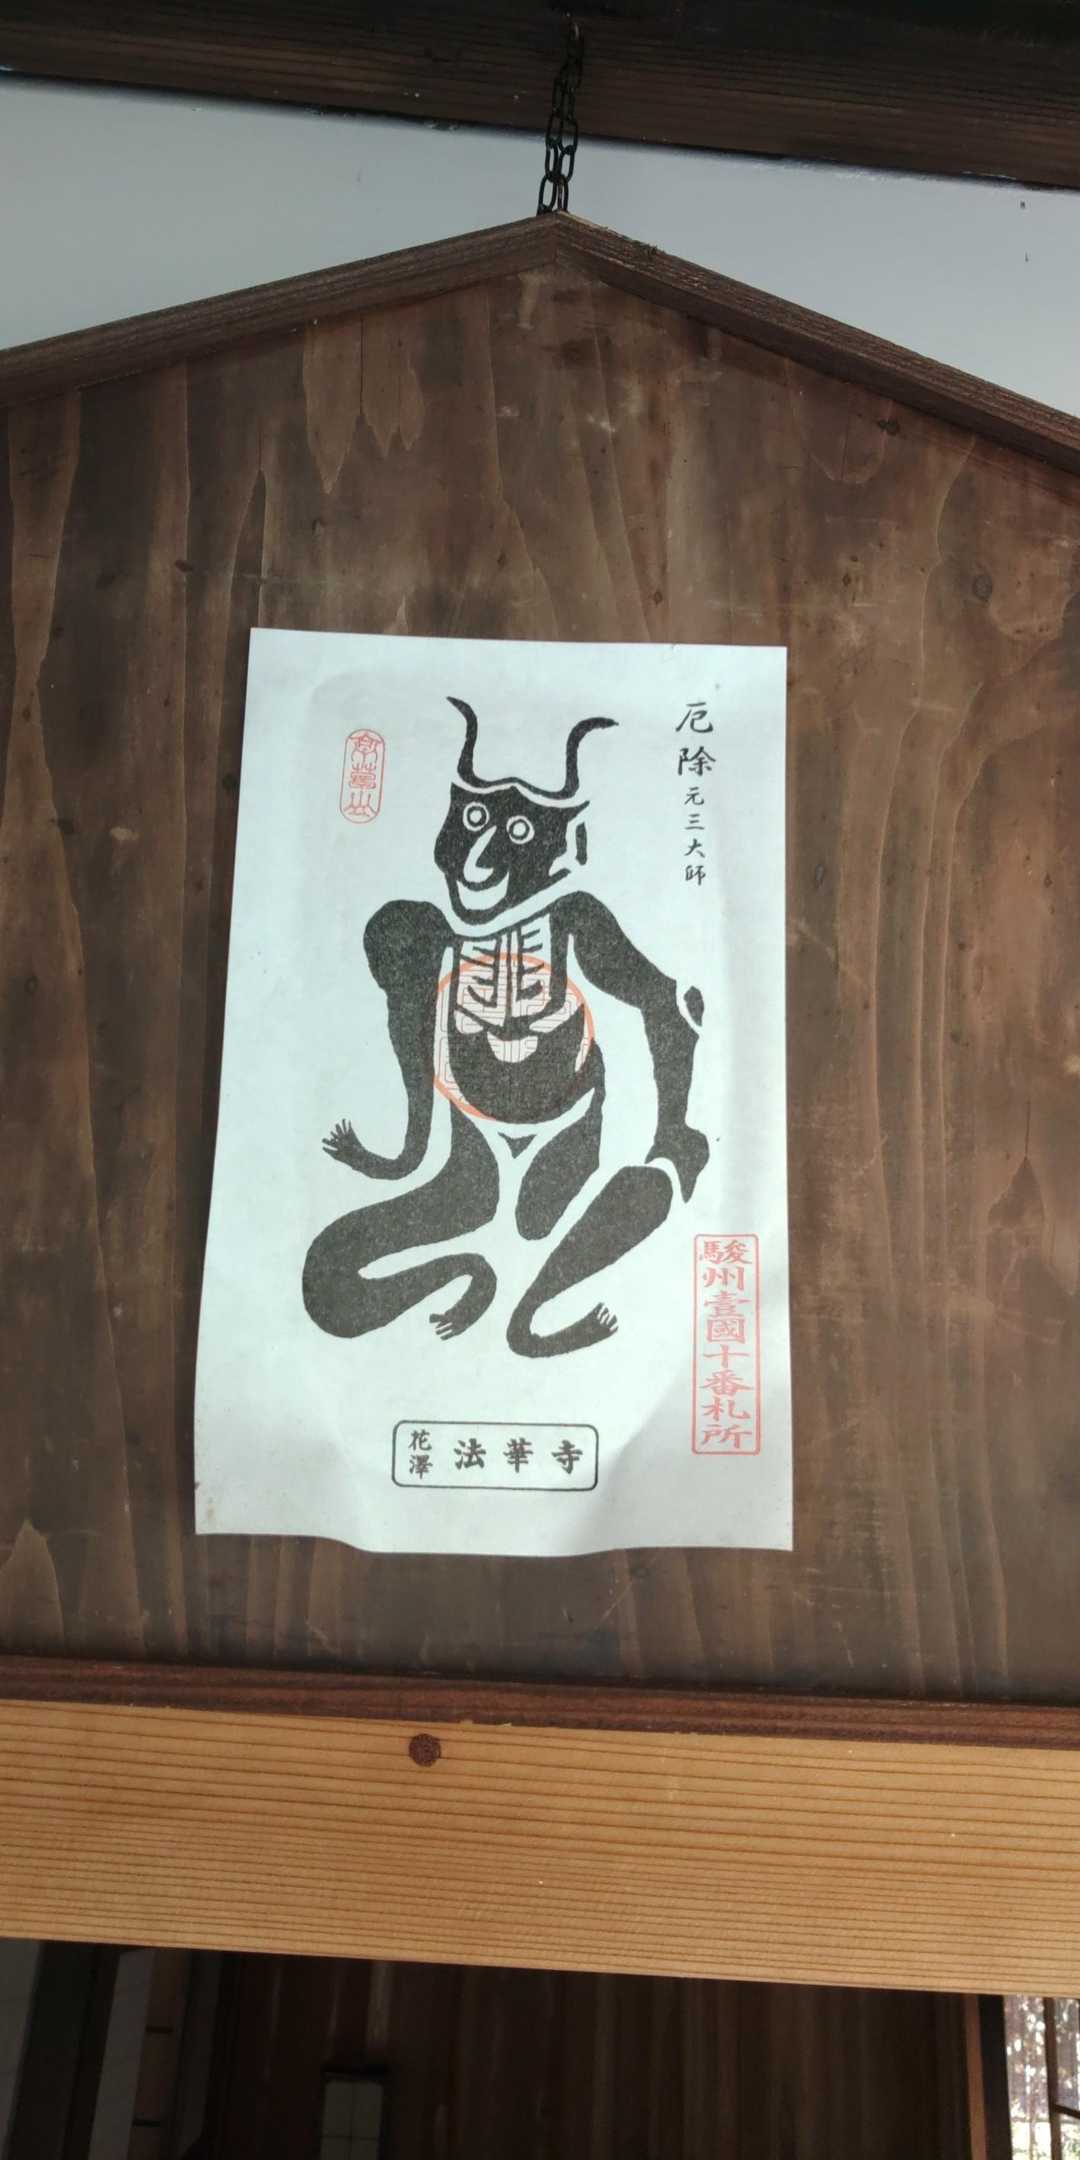 厄除元三大師
駿州壹國十番札所
花澤
法華寺